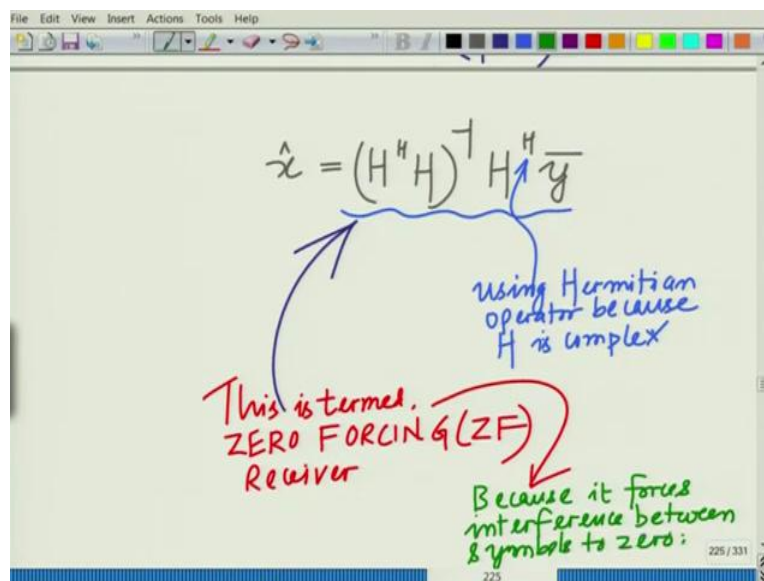 File Edit View Insert Actions Tools Help
x̂ = (HᴴH)⁻¹ Hᴴ y̅
using Hermitian
operator because
H is complex
This is termed.
ZERO FORCING (ZF)
Receiver
Because it forces
interference between
symbols to zero:
225 / 331
225